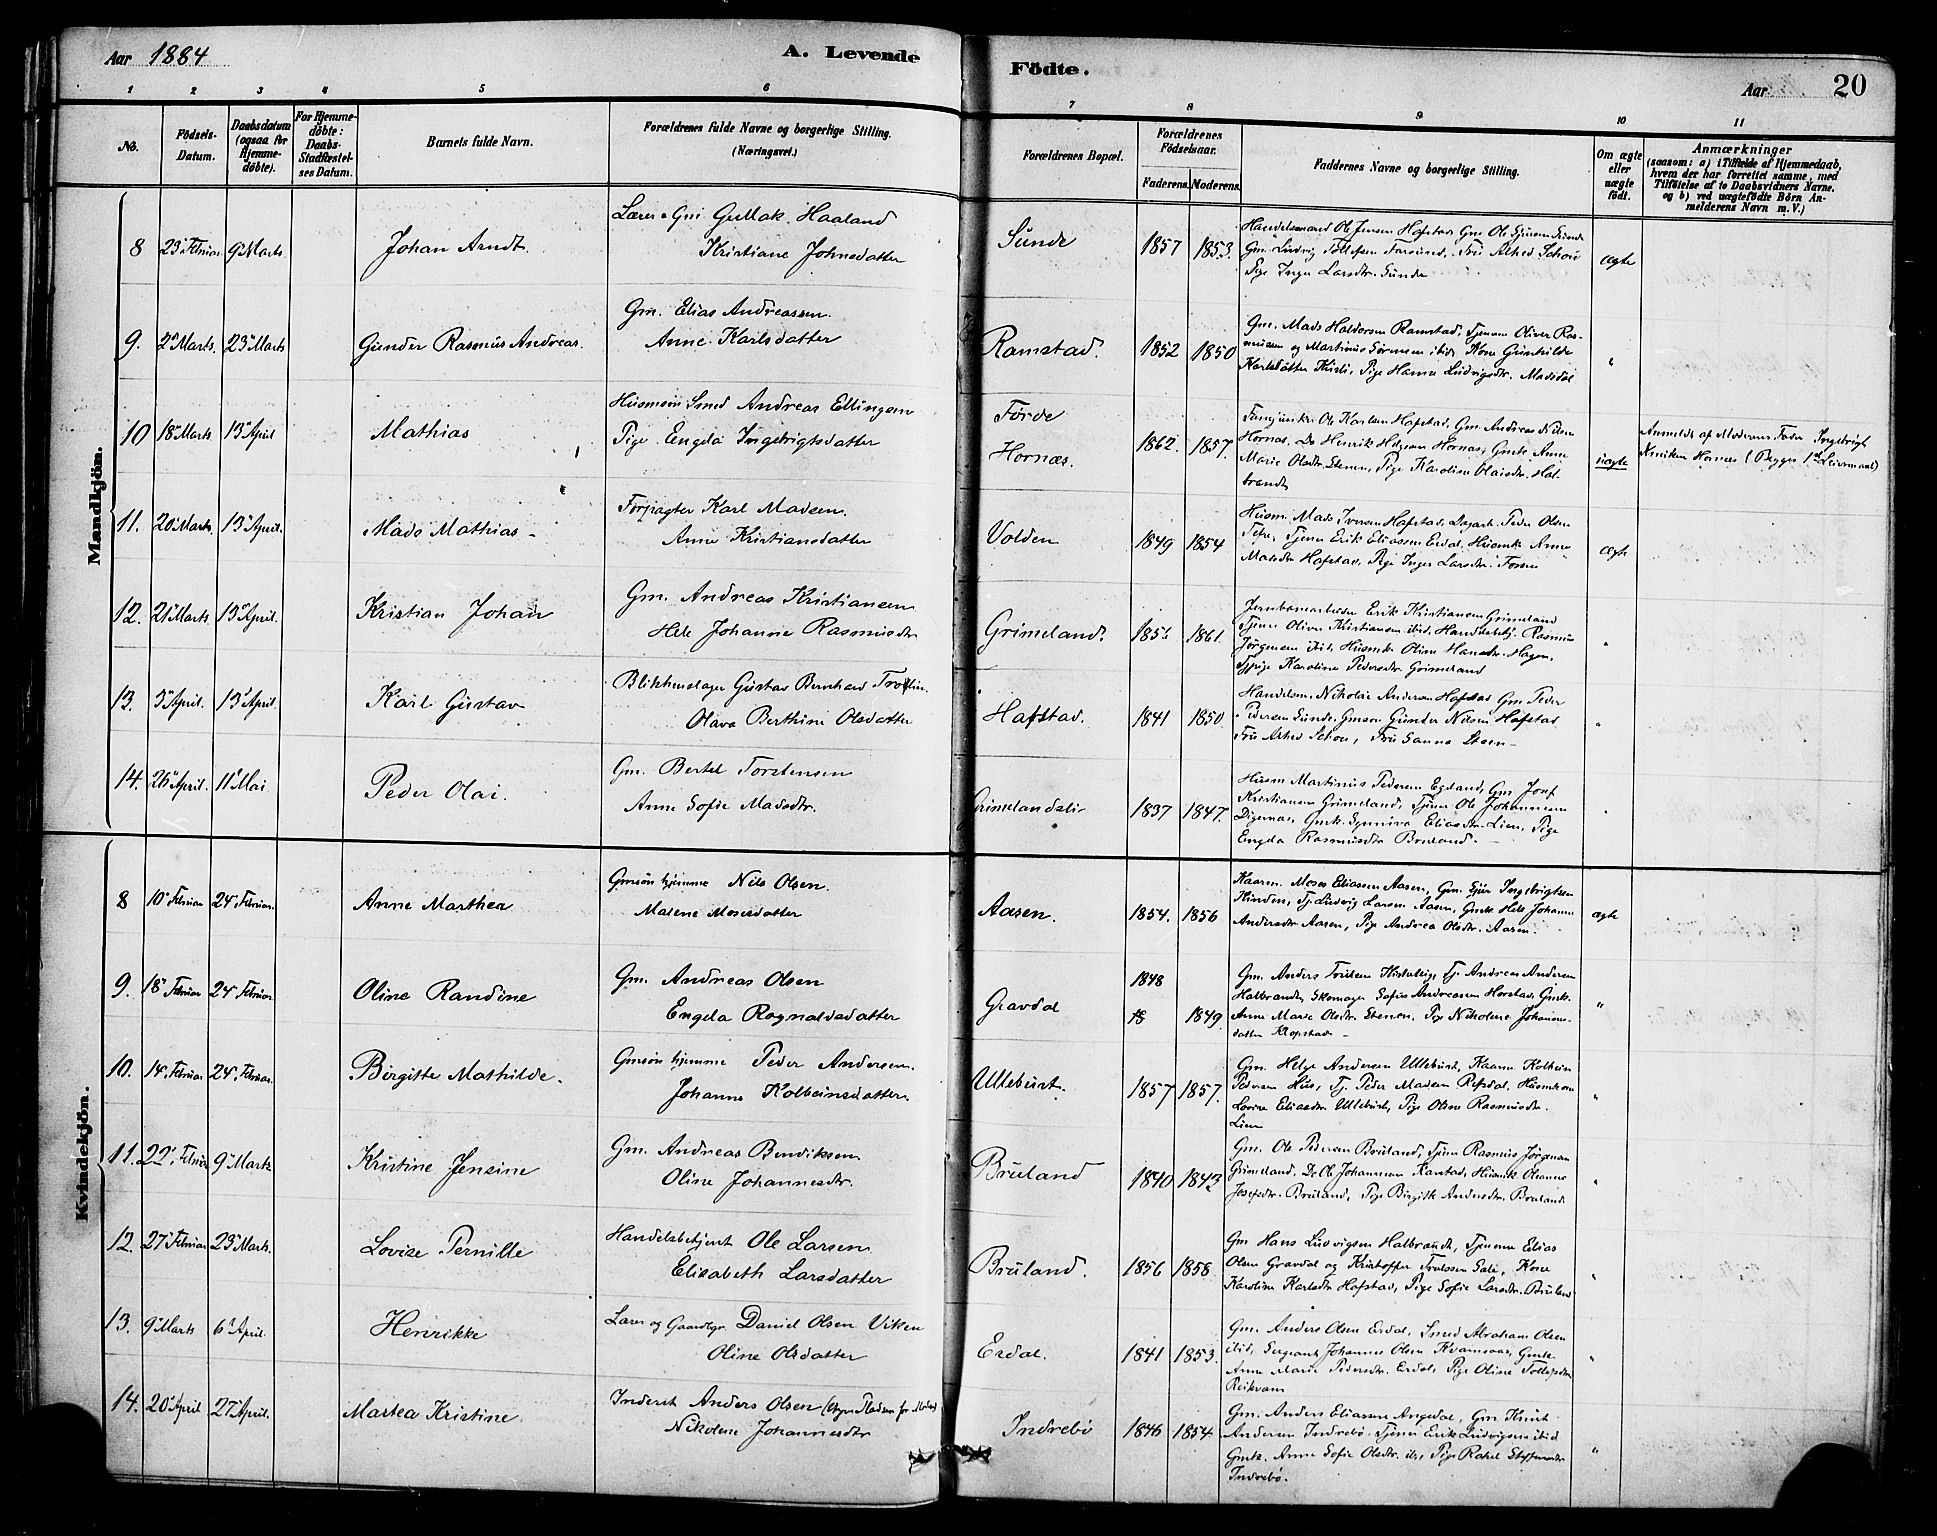 Aar 1884
A. Levende
Födte.
Aar
20
1 2 3 4 5 6 7 8 9 10 11
No.
Födsels-Datum.
Daabsdatum (ogsaa for Hjemmedöbte).
For Hjemmedöbte: Daabs-Stadfæstelses Datum.
Barnets fulde Navn.
Forældrenes fulde Navne og borgerlige Stilling.
(Næringsvei.)
Forældrenes Bopæl.
Forældrenes Födselsaar.
Faderens. Moderens.
Faddernes Navne og borgerlige Stilling.
Om ægte eller uægte födt.
Anmærkninger
(saasom: a) i Tilfælde af Hjemmedaab, hvem der har forrettet samme, med Tilföielse af to Daabsvidners Navne. og b) ved uægtefödte Börn Anmelderens Navn m. V.)
Mandkjön.
8 23 Februar 9 Marts Johan Arndt.
Lærer Gm Gullak Haaland
Kristiane Johnsdatter
Sunde 1857 1853.
Handelsmand Ole Jensen Hafstad, Gm Ole Sjursen Sunde
Gm. Ludvig Tollefsen Farsund, Fru Alhed Schou
Pige Inger Larsdtr. Sunde
ægte
9. 2 Marts. 23 Marts Gunder Rasmus Andreas.
Gm. Elias Andreassen.
Anne Karlsdatter
Ramstad. 1852 1850
Gm. Mads Haldorsen Ramstad, Tjenern Oliver Rasmussen og Martinus Sørensen ibid, Kone Gunhilde
Karlsdatter, Pige Hanne Ludvigsdtr. Madsdal
"
10 18 Marts 13 April Mathias
Husmsøn Smed Andreas Ellingsen
Pige Engda Ingebrigtsdatter
Førde
Hornæs. 1862. 1857.
Ole Karlsen Hafstad, Gm. Andreas Nilsen
Hornæs, Do Henrik Helgesen Hornæs, Gmk Anne
Marie Olsdtr. Steinen, Pige Karoline Olaisdtr. Halbrendt
uægte
Anmeldt af Moderens Fader Ingebrigt
Hornæs (Begges 1ste Leiermaal)
11. 20 Marts. 13 April. Mads Mathias
Forpagter Karl Madsen.
Anne Kristiansdatter
Volden 1849 1854
Husm. Mads Iversen Hafstad, Dagarb. Peder Olsen
Tefre, Tjener Erik Eliassen Erdal, Husmk Anne
Madsdtr Hafstad, Pige Inger Larsdtr.
ægte
12. 21 Marts. 13 April. Kristian Johan
Gm. Andreas Kristiansen
Hele Johanne Rasmusdtr
Grimeland. 1861.
Jernbanearbeider Erik Kristiansen Grimeland
Tjener Oliver Kristiansen ibid, Handelsbetj. Rasmus
Jørgensen ibid, Husmk Oline Hansdtr. Hagen,
Tjpige Karoline Pedersdtr. Grimeland
"
13. 3 April. 13 April. Karl Gustav
Blikkenslager Gustav Bernhard
Olava Berthine Olsdatter
Hafstad. 1841 1850
Handelsm. Nikolai Andersen Hafstad, Gm. Peder
Pedersen Sunde, Gmsøn Gunder Nilsen Hafstad
Fru Alhed Schou, Fru Sanna Steen
"
14. 26 April. 11 Mai Peder Olai.
Gm. Bertel Torstensen
Anne Sofie Madsdtr.
Grimelandslir 1837 1847.
Husm Martinus Pedersen Egeland, Gm Josef
Kristiansen Grimeland, Tjener Ole Johannesen
Digernæs, Gmk. Synneva Eliasdtr. Lien, Pige
Engda Rasmusdtr Bruland.
"
Kvindekjön.
8 10 Februar 24 Februar. Anne Marthea
Gmsøn hjemme Nils Olsen.
Malene Mosesdatter
Aasen. 1854. 1856
Kaarm. Moses Eliassen Aasen, Gm. Sjur Ingebrigtsen
Hinden, Tj. Ludvig Larsen Aasen, Gmk. Hele Johanne
Andersdtr Aasen, Pige Andrea Olsdtr. Aasen.
ægte
9. 18 Februar 24 Februar Oline Randine
Gm. Andreas Olsen
Engela Ragnaldsdatter
Gravdal 1848
18 1849
Gm. Anders Trulsen, Tj. Andreas Andersen
Halbrendt, Skomager Sofus Andreassen Horstad, Gmk.
Anne Marie Olsdtr. Steinen, Pige Nikoline Johannesdatter Hafstad
"
10. 14 Februar 24 Februar. Birgitte Mathilde.
Gmsøn hjemme Peder Andersen.
Johanne Kolbeinsdatter.
Ullebust. 1857 1857.
Gm. Helge Andersen Ullebust, Kaarm Kolbein
Pedersen Hus, Tj. Peder Madsen Refsdal, Husmkone
Lovise Eliasdtr Ullebust, Pige Oline Rasmusdtr.
Lien
"
11. 22 Februar 9 Marts Kristine Jensine
Gm. Andreas Bendiksen.
Oline Johannesdtr.
Bruland 1840 1843
Gm. Ole Pedersen Bruland, Tjener Rasmus Jørgensen
Grimeland, Do Ole Johannesen Karstad, Husmk Oleanne
Josefsdtr. Bruland, Pige Birgitte Andersdtr. Bruland
"
12. 27 Februar 23 Marts. Lovise Pernille
Handelsbetjent Ole Larsen
Elisabeth Larsdatter
Bruland. 1856 1858
Gm Hans Ludvigsen Halbrendt, Tjenerne Elias
Olsen Gravdal og Kristoffer Trulssen Sele, Kone
Karoline Karlsdtr Hafstad, Pige Sofie Larsdtr. Bruland
"
13. 9 Marts 6 April. Henrikke
Lærer og Gaardbgr. Daniel Olsen Viken
Oline Olsdatter
Erdal. 1841 1853.
Gm. Anders Olsen Erdal, Smed Abraham Olsen
ibid, Sergeant Johannes Olsen Kvamsaas, Gmk.
Anne Marie Pedersdtr. Erdal, Pige Oline Tollefsdtr
Reikvam
"
14. 20 April 27 April. Martea Kristine
Inderst Anders Olsen
Nikoline Johannesdtr
Indrebö 1846 1854
Gm. Anders Eliassen Angedal, Gm. Knut
Andersen Indrebö, Tjener Erik Ludvigsen ibid
Gmk. Anne Sofie Olsdtr. ib., Pige Rakel Steffensdtr
Indrebø.
"